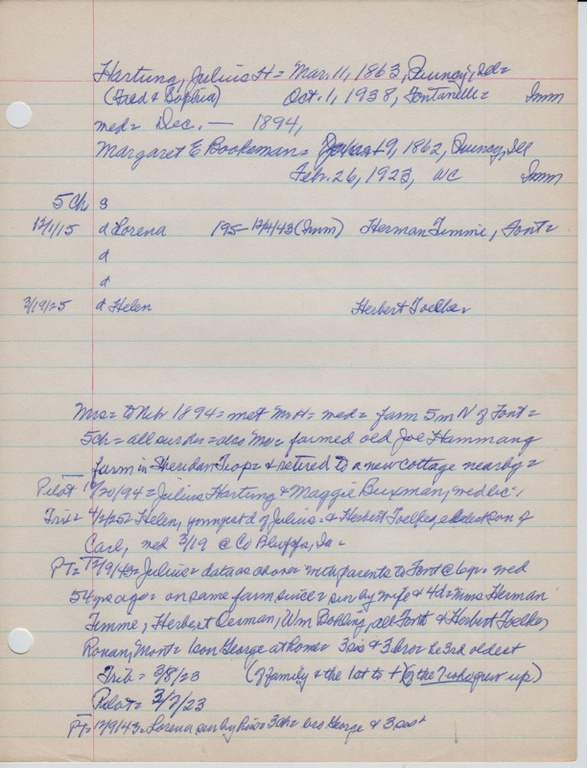 Hartung, Julius H = Mar. 11, 1863, Quincy, Ill =
(Fred & Sophia) Oct. 1, 1938, Fontanelle = Imm
med = Dec. — 1894,
Margaret E Bookeman = 9, 1862, Quincy, Ill
Feb. 26, 1923, WC Imm
5 Ch s
12/1/15 d Lorena 195- 12/4/43 (Imm) Herman Timme, Font =
d
d
3/19/25 d Helen Herbert Toelke
Mrs = to Neb 1894 = met Mr H = med = farm 5m N of Font =
5 ch = all sur her = also Mr = farmed old Joe Hammang
farm in Sheridan Twp = & retired to a new cottage nearby =
Pilot 12/20/94 = Julius Hartung & Maggie Buxman, med lic =
Trib = 4/2/25 = Helen, youngest d of Julius = & Herbert Toelke, eldest son of
Carl, med 3/19 @ Co Bluffs, Ia =
PT = 12/9/43 = Julius = data as above = with parents to Font @ 6 yr = med
54 yrs ago = on same farm since = sur by wife & 4d = Mmes Herman
Timme, Herbert Oerman, Wm Bolling, all Font & Herbert Toelke,
Ronan, Mont = 1 son George at home = 3 sis & 3 bro = he 3rd oldest
Trib = 3/8/23 (of family & the 1st to + (of the 7 who grew up)
Pilot = 3/7/23
PT = 12/9/43 = Lorena sur by = 3 ch = bro George & 3 sis +